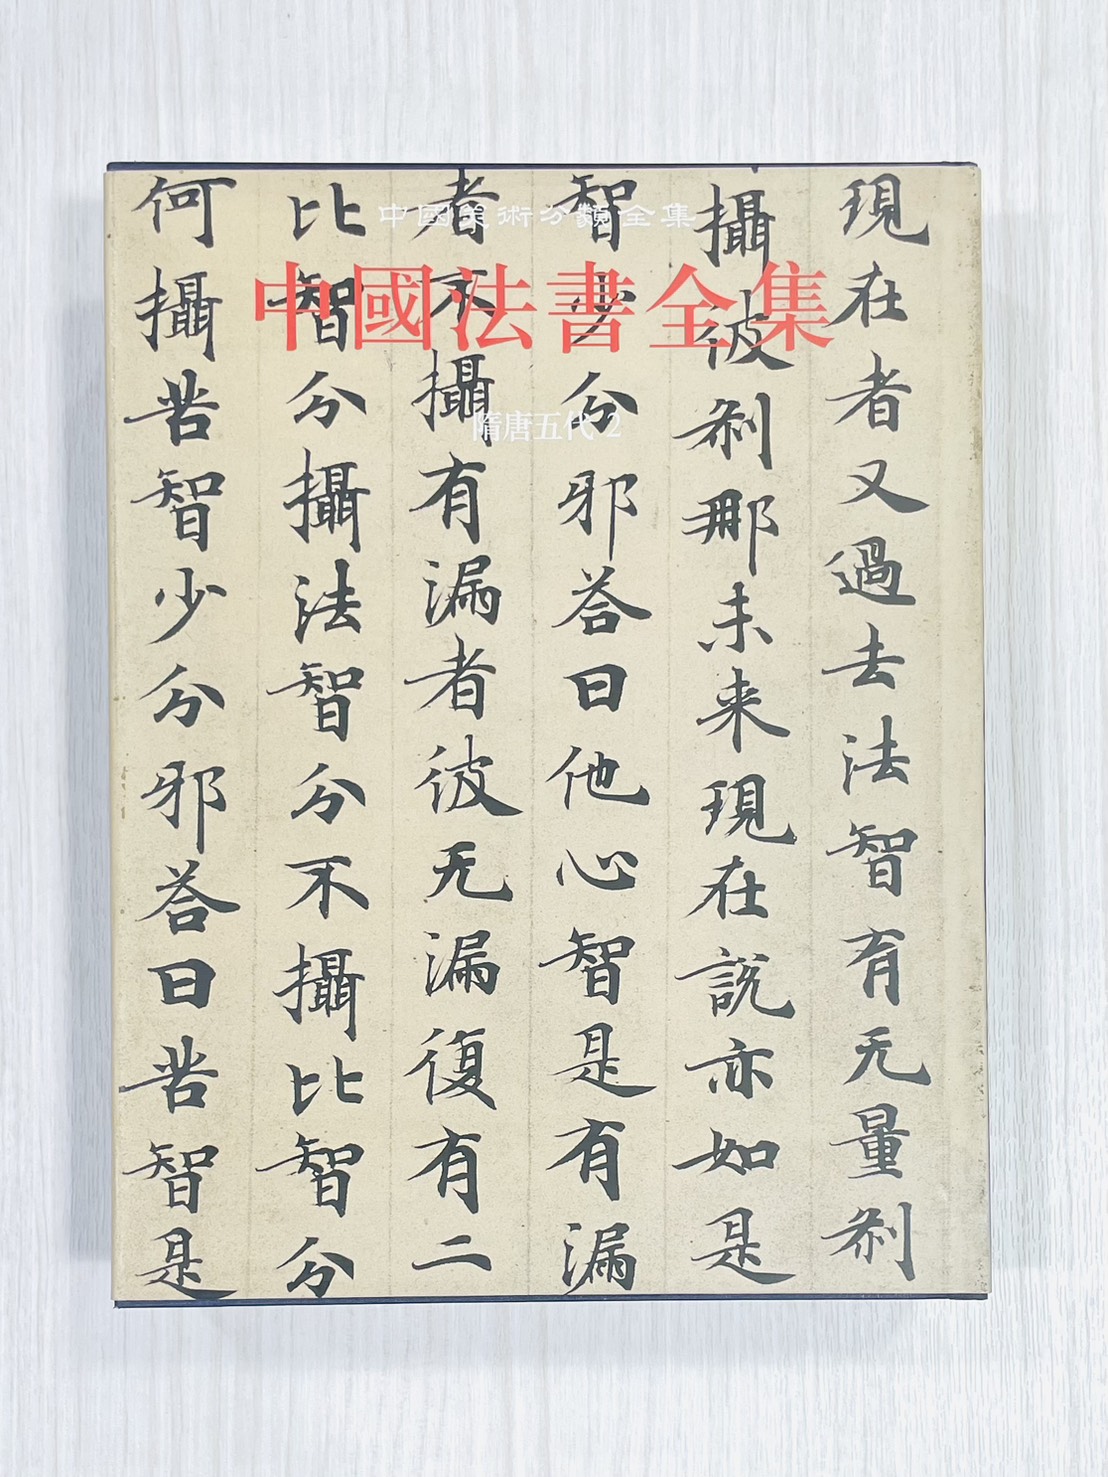 中國美術分類全集
中國法書全集
隋唐五代 2
現在者又過去法智有无量刹
攝彼刹那未来現在說亦如是
智少分邪荅曰他心智是有漏
者不攝有漏者彼无漏復有二
比智分攝法智分不攝比智分
何攝苦智少分邪荅曰苦智是